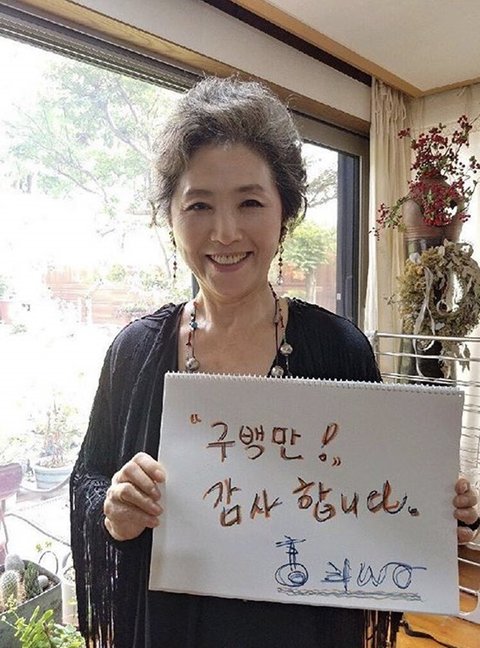 "구백만!"
감사합니다.